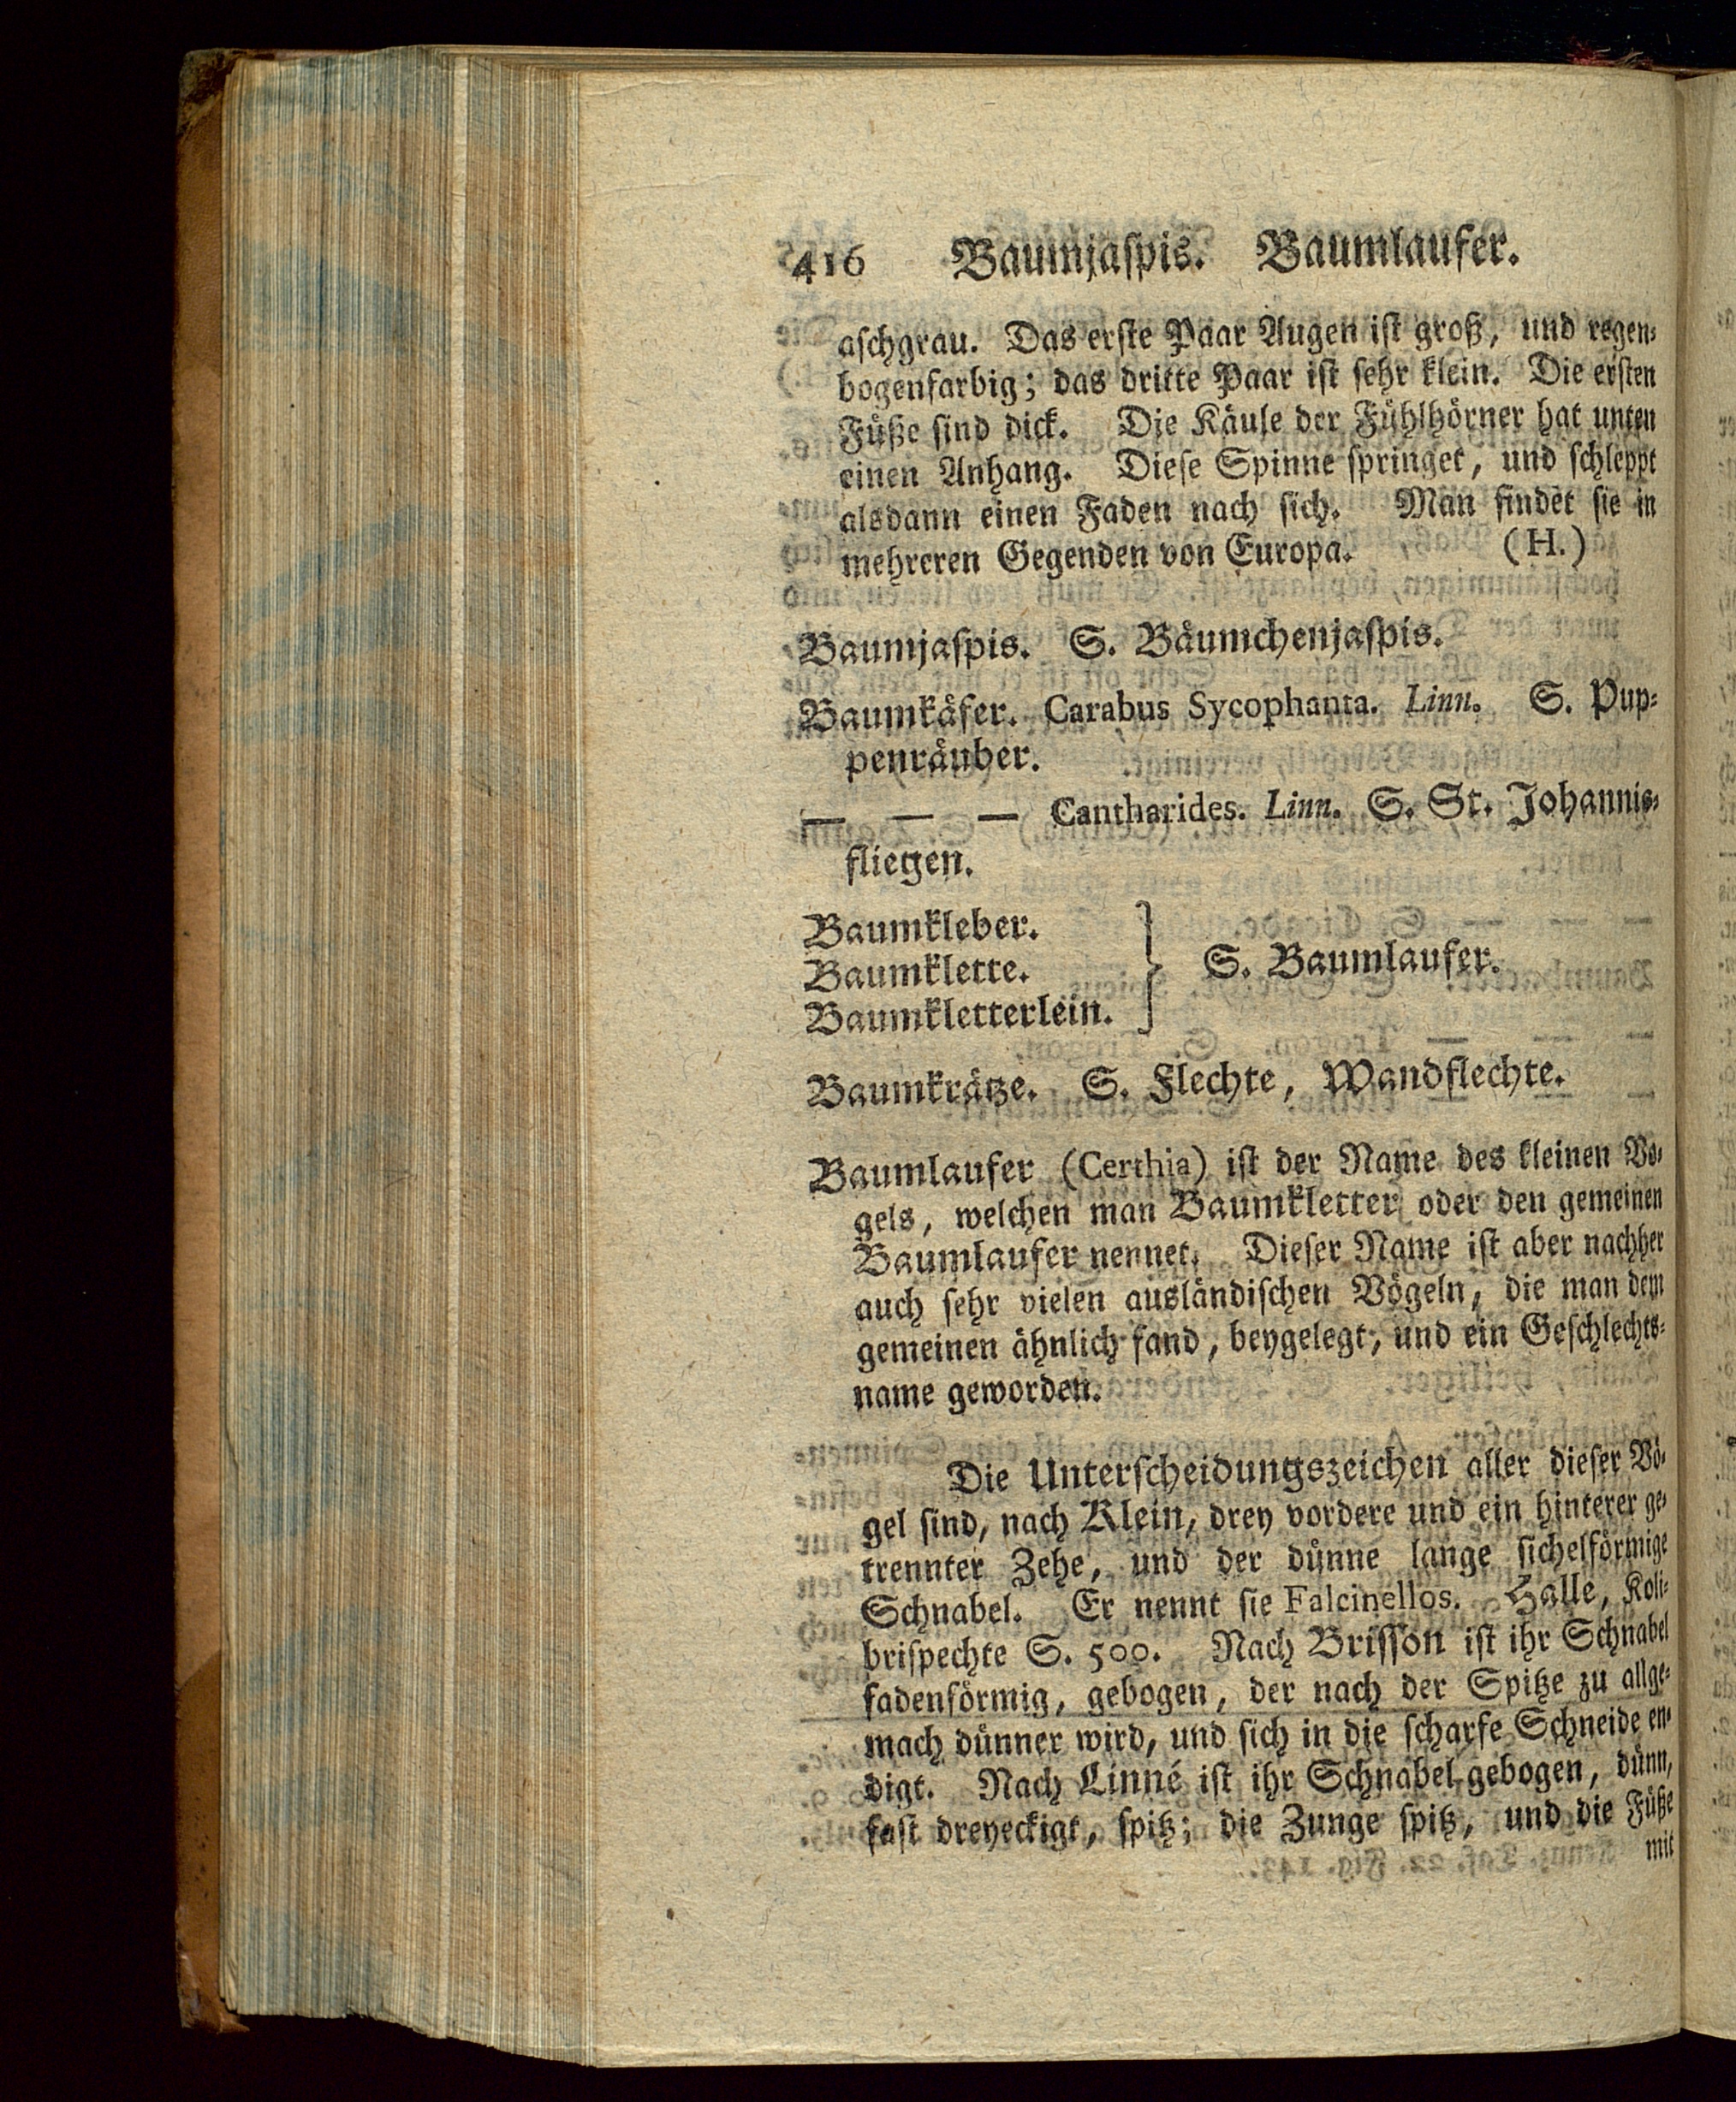 416 Baumjaspis. Baumlaufer.
aschgrau. Das erste Paar Augen ist groß, und regen-
bogenfarbig; das dritte Paar ist sehr klein. Die ersten
Füße sind dick. Die Käule der Fühlhörner hat unten
einen Anhang. Diese Spinne springet, und schleppt
alsdann einen Faden nach sich. Man findet sie in
mehreren Gegenden von Europa. (H.)
Baumjaspis. S. Bäumchenjaspis.
Baumkäfer. Carabus Sycophanta. Linn. S. Pup-
penräuber.
— — — Cantharides. Linn. S. St. Johannis-
fliegen.
Baumkleber.
Baumklette. } S. Baumlaufer.
Baumkletterlein.
Baumkrätze. S. Flechte, Wandflechte.
Baumlaufer (Certhia) ist der Name des kleinen Vo-
gels, welchen man Baumkletter oder den gemeinen
Baumlaufer nennet. Dieser Name ist aber nachher
auch sehr vielen ausländischen Vögeln, die man dem
gemeinen ähnlich fand, beygelegt, und ein Geschlechts-
name geworden.
Die Unterscheidungszeichen aller dieser Vö-
gel sind, nach Klein, drey vordere und ein hinterer ge-
trennter Zehe, und der dünne lange sichelförmige
Schnabel. Er nennt sie Falcinellos. Halle, Koli-
brispechte S. 500. Nach Brisson ist ihr Schnabel
fadenförmig, gebogen, der nach der Spitze zu allge-
mach dünner wird, und sich in die scharfe Schneide en-
digt. Nach Linné ist ihr Schnabel gebogen, dünn,
fast dreyeckigt, spitz; die Zunge spitz, und die Füße
mit